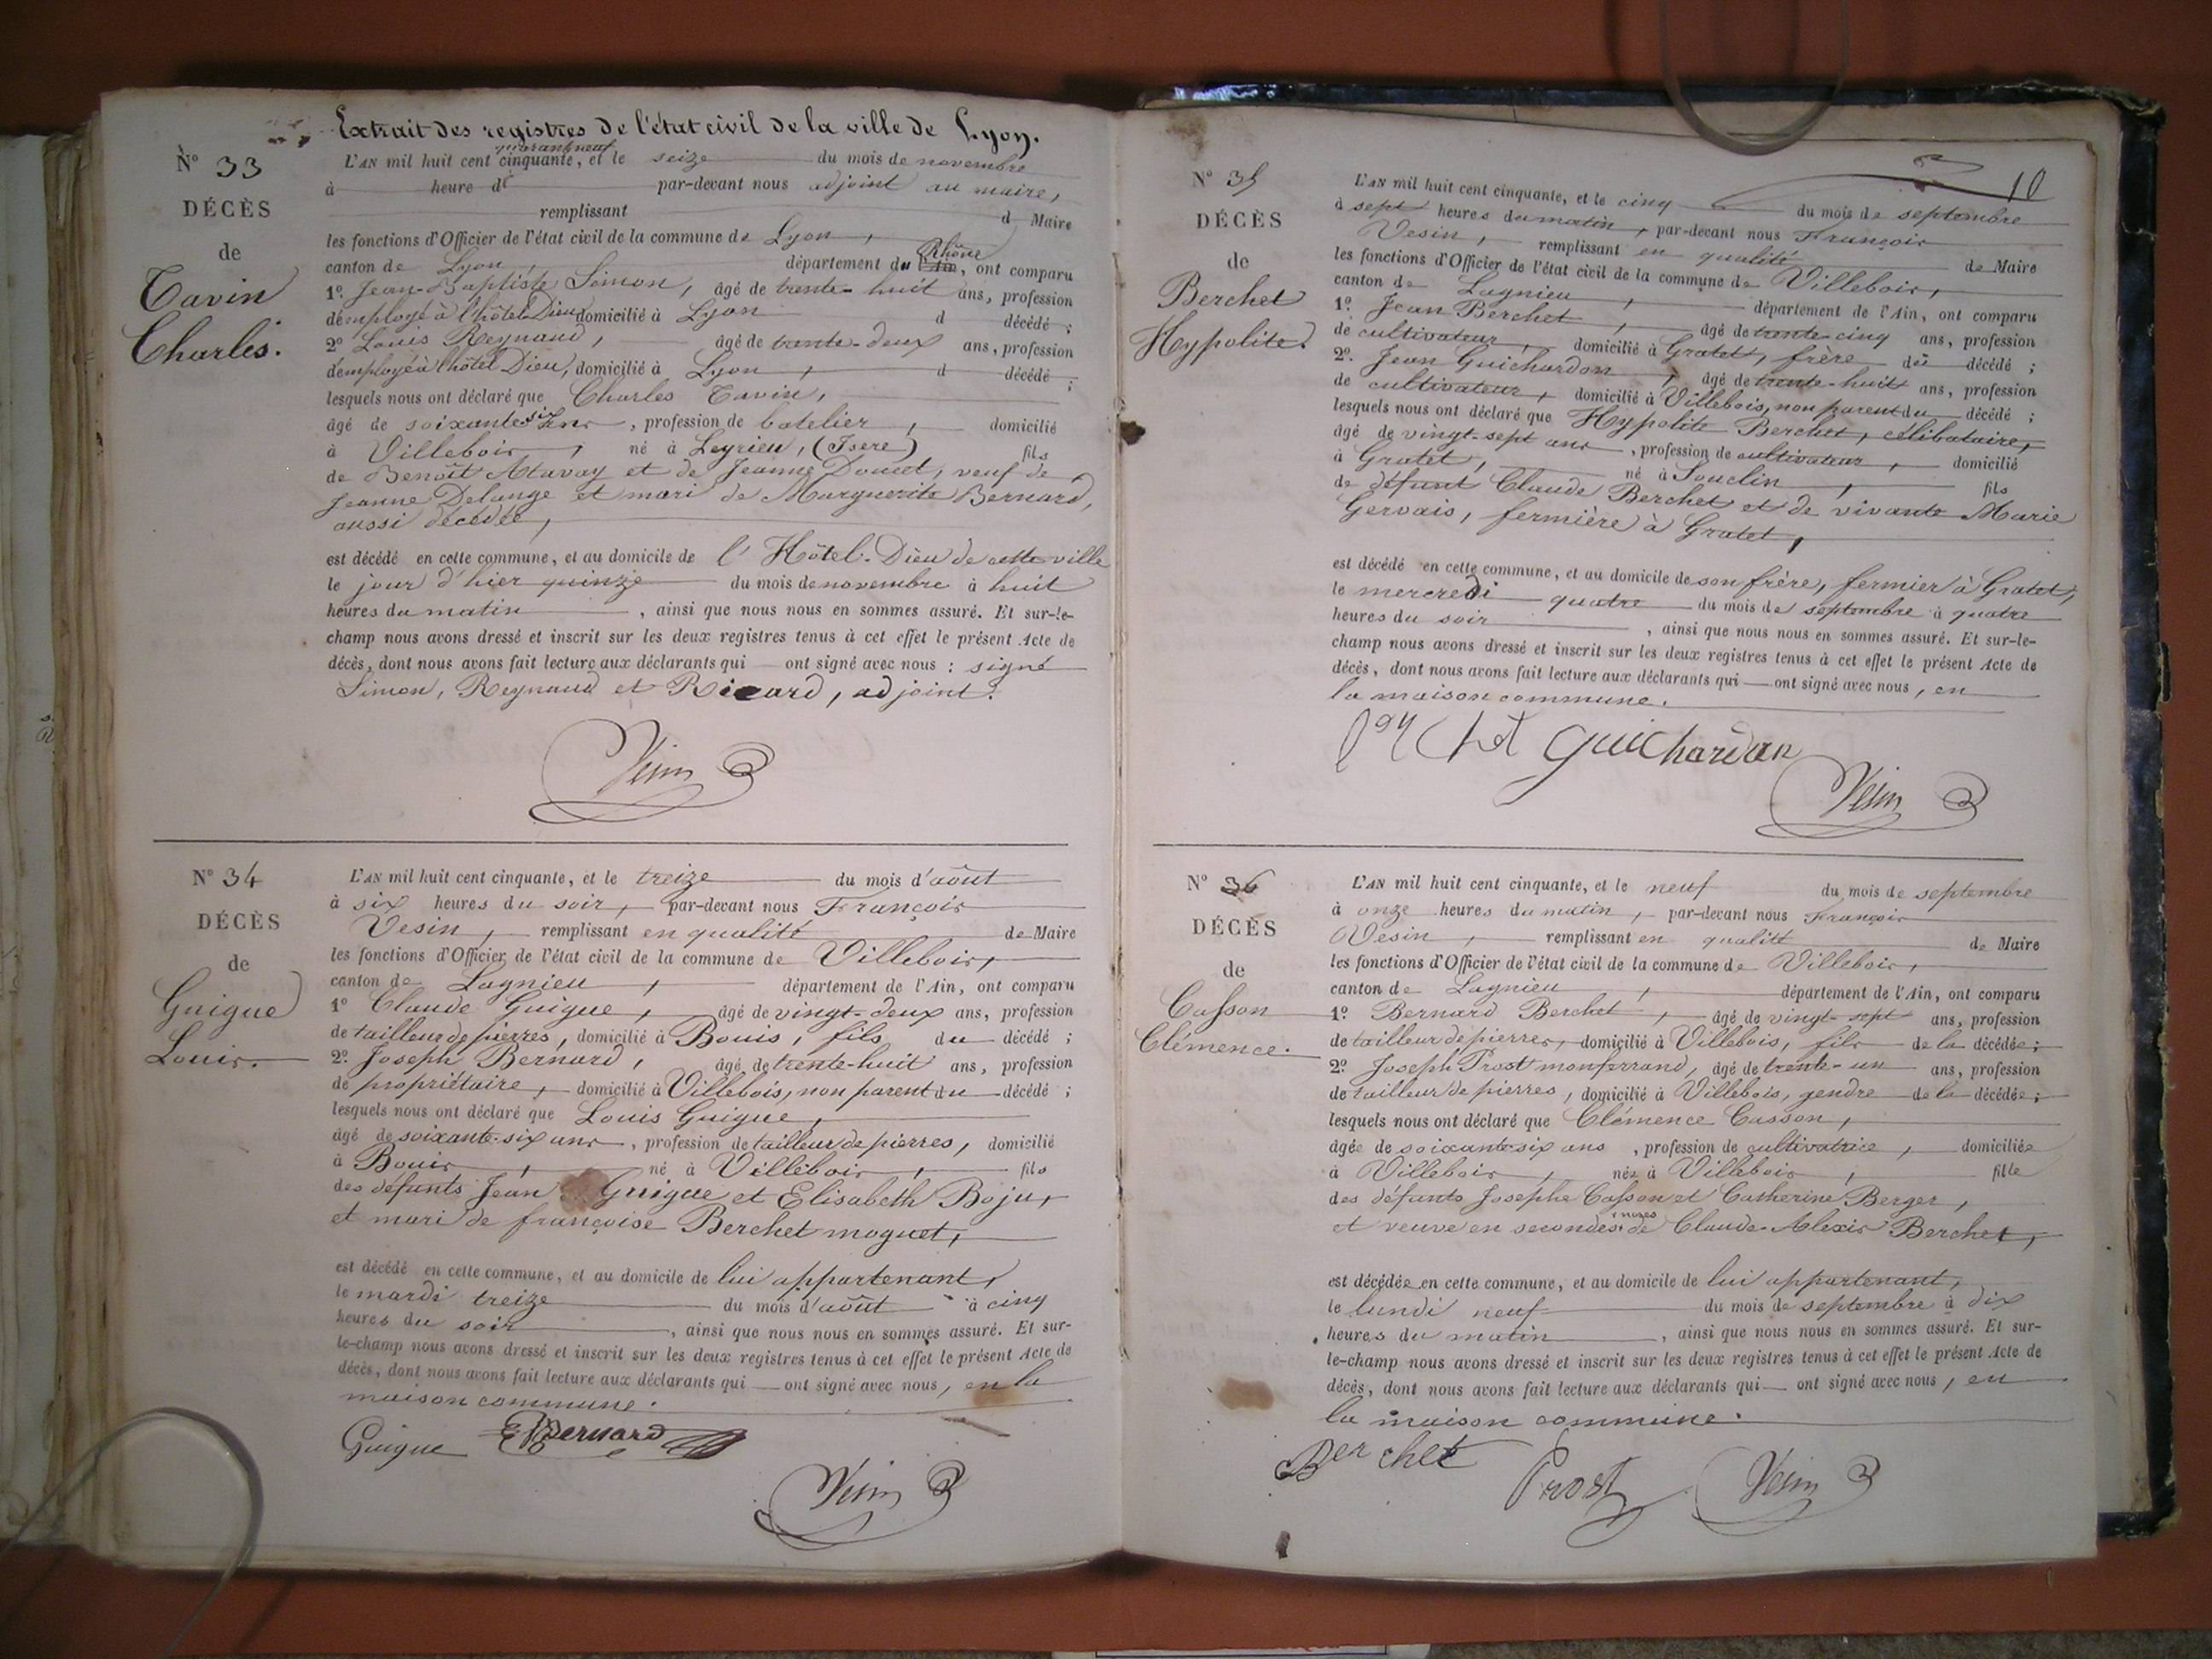 Extrait des registres de l'état civil de la ville de Lyon.
N° 33
DÉCÈS
de
Tavin
Charles.
quarante neuf
L'AN mil huit cent cinquante, et le seize du mois de novembre
à heure d par-devant nous adjoint au maire,
remplissant d Maire
les fonctions d'Officier de l'état civil de la commune de Lyon,
Rhône
canton de Lyon, département du l'Ain, ont comparu
1°. Jean-Baptiste Simon, âgé de trente-huit ans, profession
d'employé à l'hôtel Dieu domicilié à Lyon d décédé ;
2° Louis Reynaud, âgé de trente-deux ans, profession
d'employé à l'hôtel Dieu, domicilié à Lyon, d décédé ;
lesquels nous ont déclaré que Charles Tavin,
âgé de soixante six ans, profession de batelier, domicilié
à Villebois, né à Leyrieu, (Isere) fils
de Benoît Atavay et de Jeanne Doucet, veuf de
Jeanne Delange et mari de Marguerite Bernard,
aussi décédée,
est décédé en cette commune, et au domicile de l'Hôtel-Dieu de cette ville
le jour d'hier quinze du mois de novembre à huit
heures du matin, ainsi que nous nous en sommes assuré. Et sur-le-
champ nous avons dressé et inscrit sur les deux registres tenus à cet effet le présent Acte de
décès, dont nous avons fait lecture aux déclarants qui ont signé avec nous : signé
Simon, Reynaud et Ricard, adjoint.
Vesin
N° 34
DÉCÈS
de
Guigue
Louis.
L'AN mil huit cent cinquante, et le treize du mois d'août
à six heures du soir, par-devant nous François
Vesin, remplissant en qualité de Maire
les fonctions d'Officier de l'état civil de la commune de Villebois,
canton de Lagnieu, département de l'Ain, ont comparu
1° Claude Guigue, âgé de vingt-deux ans, profession
de tailleur de pierres, domicilié à Bouis, fils du décédé ;
2°. Joseph Bernard, âgé de trente-huit ans, profession
de propriétaire, domicilié à Villebois, non parent du décédé ;
lesquels nous ont déclaré que Louis Guigue,
âgé de soixante-six ans, profession de tailleur de pierres, domicilié
à Bouis, né à Villebois, fils
des défunts Jean Guigue et Elisabeth Boju,
et mari de françoise Berchet moguet,
est décédé en cette commune, et au domicile de lui appartenant,
le mardi treize du mois d'août à cinq
heures du soir, ainsi que nous nous en sommes assuré. Et sur-
le-champ nous avons dressé et inscrit sur les deux registres tenus à cet effet le présent Acte de
décès, dont nous avons fait lecture aux déclarants qui ont signé avec nous, en la
maison commune.
Guigue Bernard
Vesin
10
N° 35
DÉCÈS
de
Berchet
Hypolite.
L'AN mil huit cent cinquante, et le cinq du mois de septembre
à sept heures du matin, par-devant nous François
Vesin, remplissant en qualité de Maire
les fonctions d'Officier de l'état civil de la commune de Villebois,
canton de Lagnieu, département de l'Ain, ont comparu
1°. Jean Berchet, âgé de trente-cinq ans, profession
de cultivateur, domicilié à Gratet, frère du décédé ;
2°. Jean Guichardon, âgé de trente-huit ans, profession
de cultivateur, domicilié à Villebois, non parent du décédé ;
lesquels nous ont déclaré que Hypolite Berchet, célibataire,
âgé de vingt-sept ans, profession de cultivateur, domicilié
à Gratet, né à Souclin, fils
de défunt Claude Berchet et de vivante Marie
Gervais, fermière à Gratet,
est décédé en cette commune, et au domicile de son frère, fermier à Gratet,
le mercredi quatre du mois de septembre à quatre
heures du soir, ainsi que nous nous en sommes assuré. Et sur-le-
champ nous avons dressé et inscrit sur les deux registres tenus à cet effet le présent Acte de
décès, dont nous avons fait lecture aux déclarants qui ont signé avec nous, en
la maison commune.
Guichardon
Vesin
N° 36
DÉCÈS
de
Casson
Clémence.
L'AN mil huit cent cinquante, et le neuf du mois de septembre
à onze heures du matin, par-devant nous François
Vesin, remplissant en qualité de Maire
les fonctions d'Officier de l'état civil de la commune de Villebois,
canton de Lagnieu, département de l'Ain, ont comparu
1°. Bernard Berchet, âgé de vingt-sept ans, profession
de tailleur de pierres, domicilié à Villebois, fils de la décédée ;
2°. Joseph Prost monferrand, âgé de trente-un ans, profession
de tailleur de pierres, domicilié à Villebois, gendre de la décédée ;
lesquels nous ont déclaré que Clémence Casson,
âgée de soixante six ans, profession de cultivatrice, domiciliée
à Villebois, née à Villebois, fille
des défunts Josephe Casson et Catherine Berger,
noces
et veuve en secondes de Claude-Alexis Berchet,
est décédée en cette commune, et au domicile de lui appartenant,
le lundi neuf du mois de septembre à dix
heures du matin, ainsi que nous nous en sommes assuré. Et sur-
le-champ nous avons dressé et inscrit sur les deux registres tenus à cet effet le présent Acte de
décès, dont nous avons fait lecture aux déclarants qui ont signé avec nous, en
la maison commune.
Berchet Prost Vesin